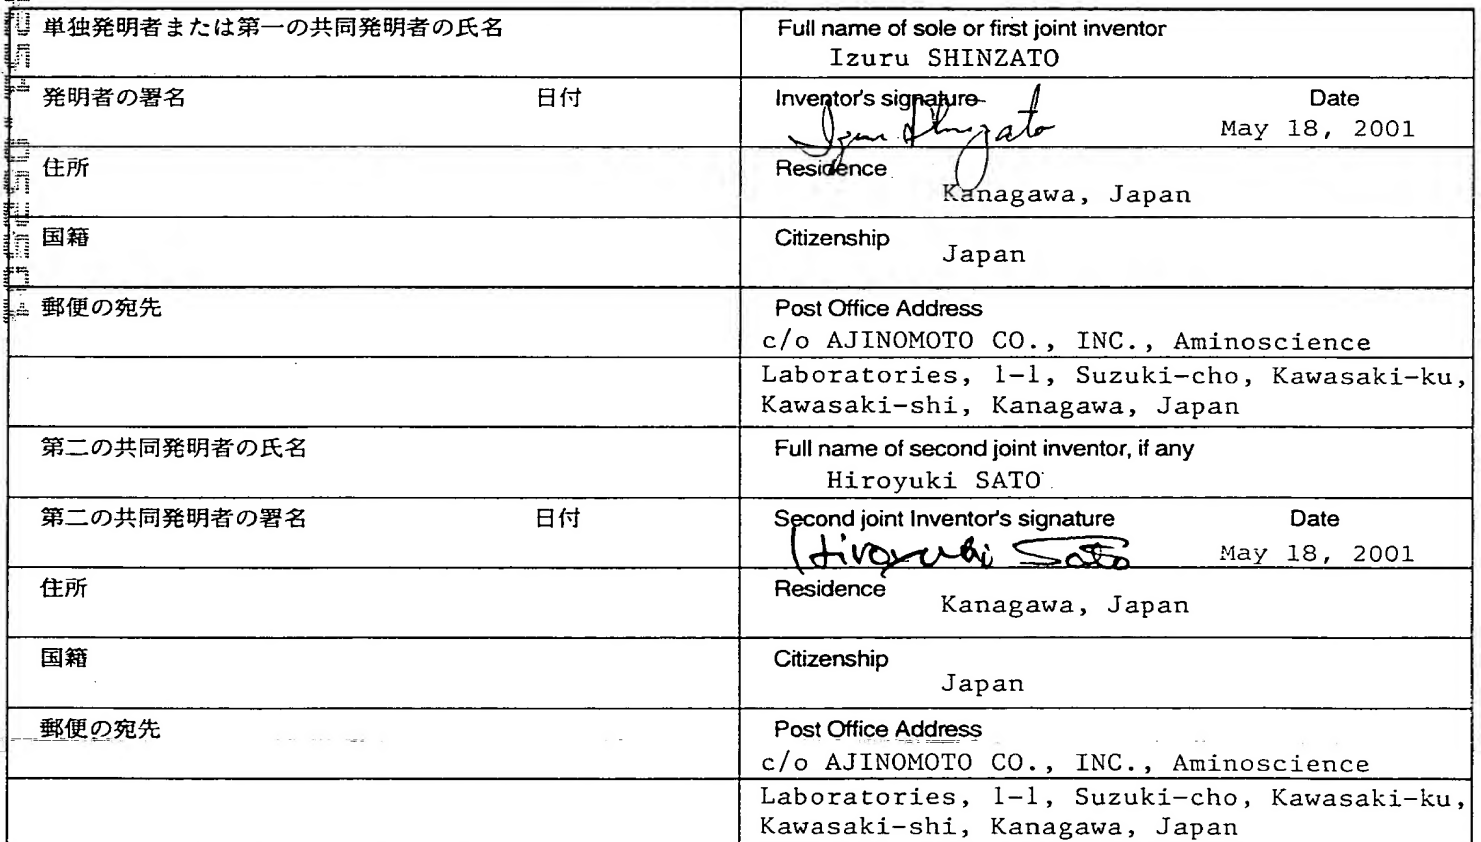 単独発明者または第一の共同発明者の氏名
Full name of sole or first joint inventor
Izuru SHINZATO
発明者の署名 日付
Inventor's signature Date
Izuru Shinzato
May 18, 2001
住所
Residence
Kanagawa, Japan
国籍
Citizenship
Japan
郵便の宛先
Post Office Address
c/o AJINOMOTO CO., INC., Aminoscience
Laboratories, 1-1, Suzuki-cho, Kawasaki-ku,
Kawasaki-shi, Kanagawa, Japan
第二の共同発明者の氏名
Full name of second joint inventor, if any
Hiroyuki SATO
第二の共同発明者の署名 日付
Second joint Inventor's signature Date
Hiroyuki Sato May 18, 2001
住所
Residence
Kanagawa, Japan
国籍
Citizenship
Japan
郵便の宛先
Post Office Address
c/o AJINOMOTO CO., INC., Aminoscience
Laboratories, 1-1, Suzuki-cho, Kawasaki-ku,
Kawasaki-shi, Kanagawa, Japan